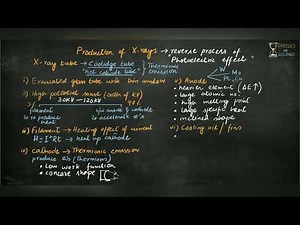 Production of X-rays → reverse process of
Photoelectric effect
X-ray tube → Coolidge tube
"hot cathode tube"
Thermionic
emission
i) Evacuated glass tube with thin windows
ii) High potential source (order of kV)
30KV – 120KV
filament
to produce
heat
b/w anode & cathode
to accelerate e's
iii) Filament → Heating effect of current
H = I²Rt → heat up cathode
iv) Cathode → Thermionic emission
produce e's (Thermions)
• low work function
• concave shape
v) Anode
W Mo
Pt, Cr
• heavier element (ΔE↑)
• large atomic no.
• high melting point
• large specific heat
• inclined shape
vi) Cooling oil / fins
PHYSICS